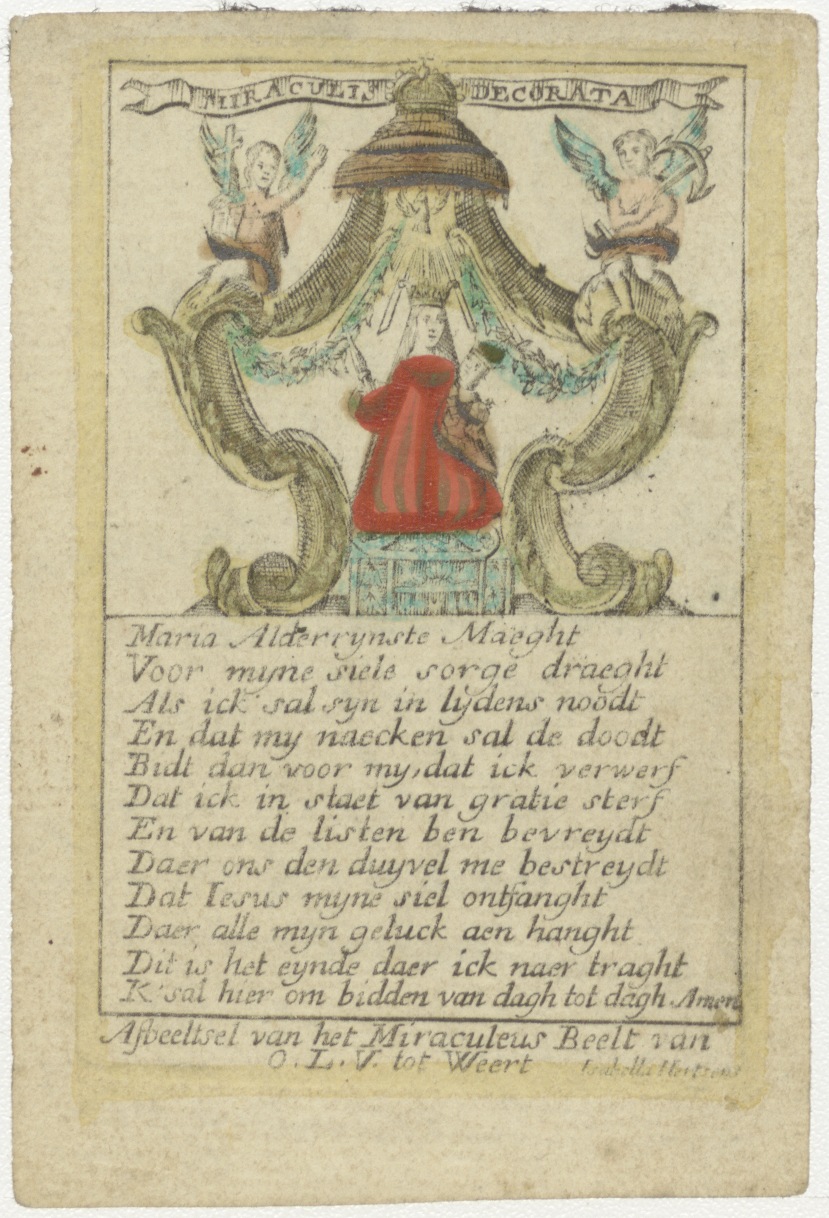 MIRACULIS DECORATA
Maria Alderrynste Maeght
Voor myne siele sorge draeght
Als ick sal syn in lydens noodt
En dat my naecken sal de doodt
Bidt dan voor my, dat ick verwerf
Dat ick in staet van gratie sterf
En van de listen ben bevreydt
Daer ons den duyvel me bestreydt
Dat Iesus myne siel ontfanght
Daer alle myn geluck aen hanght
Dit is het eynde daer ick naer traght
K'sal hier om bidden van dagh tot dagh Amen
Afbeeltsel van het Miraculeus Beelt van
O. L. V. tot Weert Isabella Hertsens